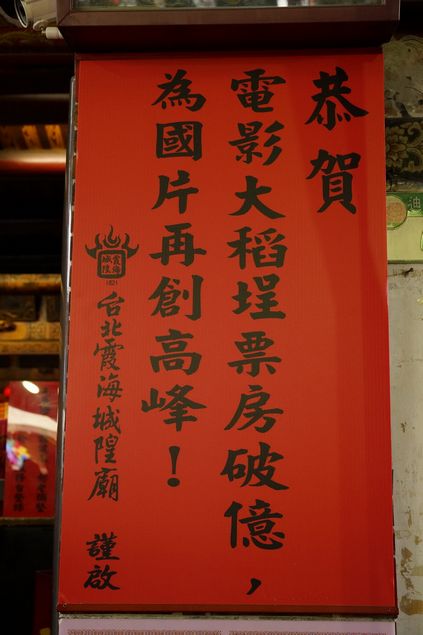 恭賀
電影大稻埕票房破億，
為國片再創高峰！
霞海城隍
1821
台北霞海城隍廟 謹啟
油